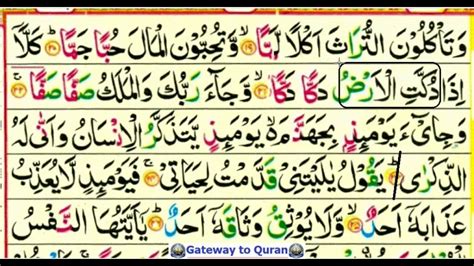 وَتَأْكُلُوْنَ التُّرَاثَ اَكْلًا لَّمًّا ۙ﴿۱۹﴾ وَّتُحِبُّوْنَ الْمَالَ حُبًّا جَمًّا ؕ﴿۲۰﴾ كَلَّاۤ
اِذَا دُكَّتِ الْاَرْضُ دَكًّا دَكًّا ۙ﴿۲۱﴾ وَّجَآءَ رَبُّكَ وَالْمَلَكُ صَفًّا صَفًّا ۚ﴿۲۲﴾
وَجِایْٓءَ يَوْمَئِذٍۭ بِجَهَنَّمَ ۙ۬ يَوْمَئِذٍ يَّتَذَكَّرُ الْاِنْسَانُ وَاَنّٰى لَهُ
الذِّكْرٰى ؕ﴿۲۳﴾ يَقُوْلُ يٰلَيْتَنِىْ قَدَّمْتُ لِحَيَاتِىْ ۚ﴿۲۴﴾ فَيَوْمَئِذٍ لَّا يُعَذِّبُ
عَذَابَهٗۤ اَحَدٌ ۙ﴿۲۵﴾ وَّلَا يُوْثِقُ وَثَاقَهٗۤ اَحَدٌ ؕ﴿۲۶﴾ يٰۤاَيَّتُهَا النَّفْسُ
Gateway to Quran